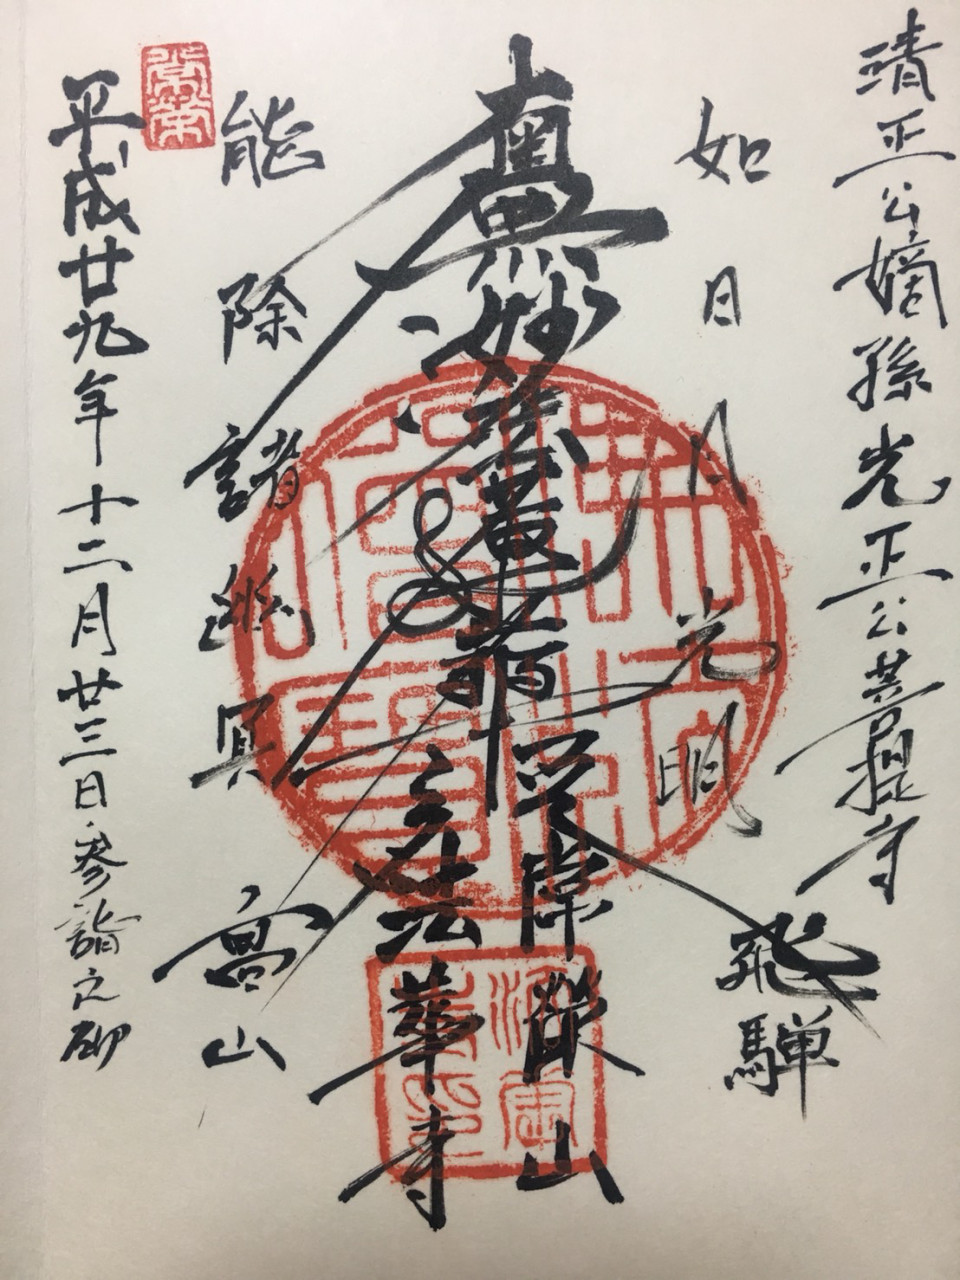 清正公嫡孫光正公菩提寺
飛騨
如日月光明
南無妙法蓮華経
山
法華寺
能除諸幽冥
高山
平成廿九年十二月廿三日参詣之砌